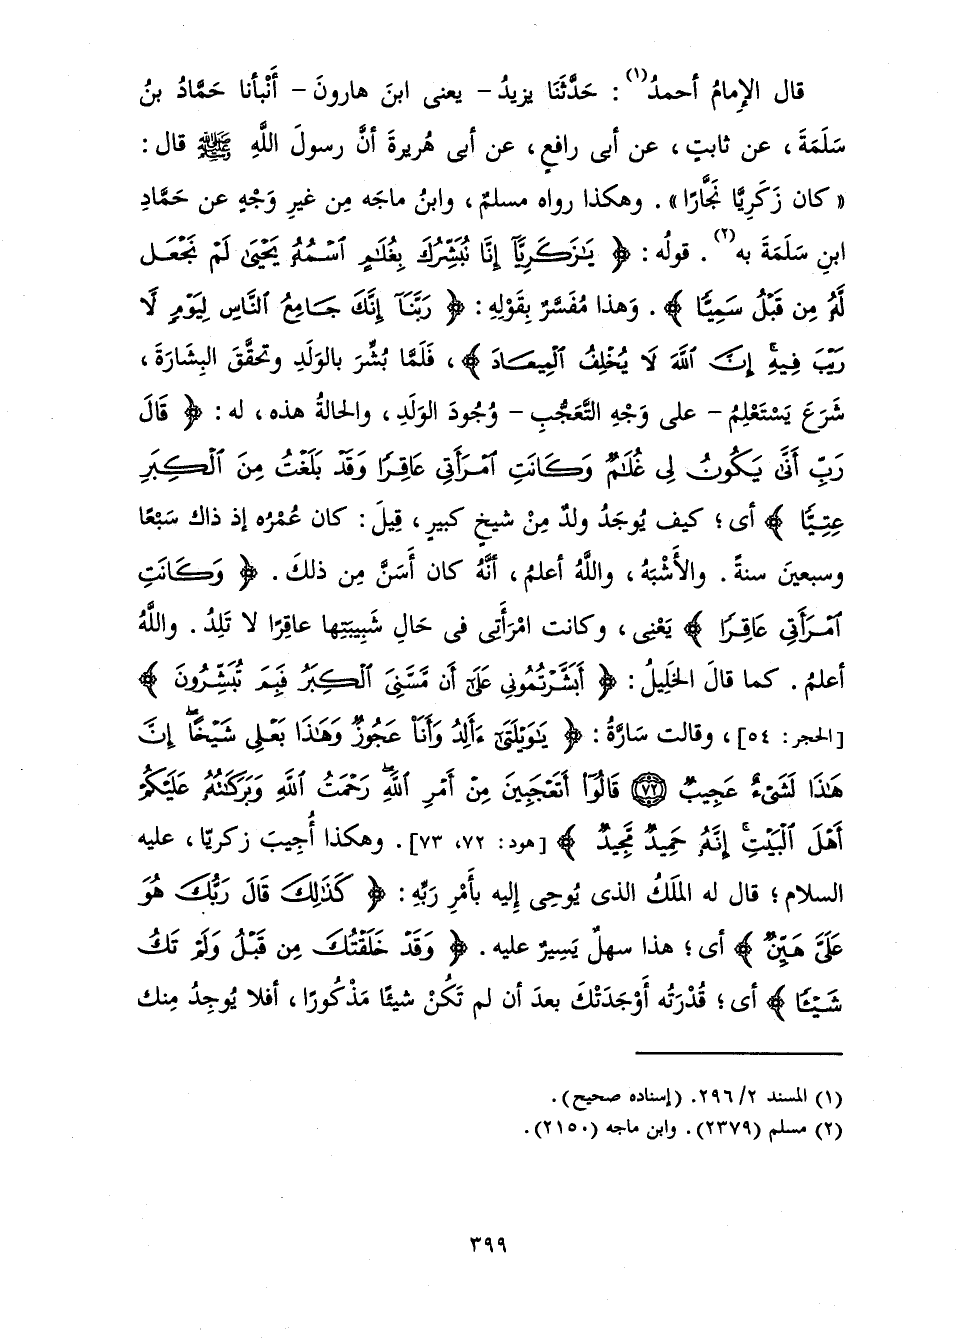 قال الإمامُ أحمدُ(١) : حَدَّثَنَا يزيدُ - يعنى ابنَ هارونَ - أَنْبأنا حَمَّادُ بنُ
سَلَمَةَ ، عن ثابتٍ ، عن أبى رافعٍ ، عن أبى هُريرةَ أنَّ رسولَ اللَّهِ ﷺ قال :
« كان زَكَرِيَّا نَجَّارًا » . وهكذا رواه مسلمٌ ، وابنُ ماجَه مِن غيرِ وَجْهٍ عن حَمَّادِ
ابنِ سَلَمَةَ به(٢) . قولُه : ﴿ يَٰزَكَرِيَّآ إِنَّا نُبَشِّرُكَ بِغُلَٰمٍ ٱسْمُهُۥ يَحْيَىٰ لَمْ نَجْعَل
لَّهُۥ مِن قَبْلُ سَمِيًّا ﴾ . وَهذا مُفَسَّرٌ بِقَوْلِهِ : ﴿ رَبَّنَآ إِنَّكَ جَامِعُ ٱلنَّاسِ لِيَوْمٍ لَّا
رَيْبَ فِيهِ ۚ إِنَّ ٱللَّهَ لَا يُخْلِفُ ٱلْمِيعَادَ ﴾ ، فَلَمَّا بُشِّرَ بالوَلَدِ وتحقَّقَ البِشَارَةَ ،
شَرَعَ يَسْتَعْلِمُ - على وَجْهِ التَّعَجُّبِ - وُجُودَ الوَلَدِ ، والحالةُ هذه ، له : ﴿ قَالَ
رَبِّ أَنَّىٰ يَكُونُ لِى غُلَٰمٌ وَكَانَتِ ٱمْرَأَتِى عَاقِرًا وَقَدْ بَلَغْتُ مِنَ ٱلْكِبَرِ
عِتِيًّا ﴾ أى ؛ كيف يُوجَدُ ولدٌ مِنْ شيخٍ كبيرٍ ، قِيلَ : كان عُمْرُه إذ ذاك سَبْعًا
وسبعينَ سنةً . والأَشْبَهُ ، واللَّهُ أعلمُ ، أنَّهُ كان أَسَنَّ مِن ذلكَ . ﴿ وَكَانَتِ
ٱمْرَأَتِى عَاقِرًا ﴾ يَعْنِى ، وكانت امْرَأَتِى فى حَالِ شَبِيبَتِها عاقِرًا لا تَلِدُ . واللَّهُ
أعلمُ . كما قالَ الخَلِيلُ : ﴿ أَبَشَّرْتُمُونِى عَلَىٰٓ أَن مَّسَّنِىَ ٱلْكِبَرُ فَبِمَ تُبَشِّرُونَ ﴾
[الحجر: ٥٤] ، وقالت سَارَّةُ : ﴿ يَٰوَيْلَتَىٰٓ ءَأَلِدُ وَأَنَا۠ عَجُوزٌ وَهَٰذَا بَعْلِى شَيْخًا ۖ إِنَّ
هَٰذَا لَشَىْءٌ عَجِيبٌ (٧٢) قَالُوٓا۟ أَتَعْجَبِينَ مِنْ أَمْرِ ٱللَّهِ ۖ رَحْمَتُ ٱللَّهِ وَبَرَكَٰتُهُۥ عَلَيْكُمْ
أَهْلَ ٱلْبَيْتِ ۚ إِنَّهُۥ حَمِيدٌ مَّجِيدٌ ﴾ [هود: ٧٢، ٧٣] . وهكذا أُجِيبَ زكريّا ، عليه
السلام ؛ قال له المَلَكُ الذى يُوحِى إليه بأَمْرِ رَبِّهِ : ﴿ كَذَٰلِكَ قَالَ رَبُّكَ هُوَ
عَلَىَّ هَيِّنٌ ﴾ أى ؛ هذا سهلٌ يَسِيرٌ عليه . ﴿ وَقَدْ خَلَقْتُكَ مِن قَبْلُ وَلَمْ تَكُ
شَيْـًٔا ﴾ أى ؛ قُدْرَتُه أَوْجَدَتْكَ بعدَ أن لم تَكُنْ شيئًا مَذْكورًا ، أفلا يُوجِدُ مِنك
(١) المسند ٢/ ٢٩٦. (إسناده صحيح).
(٢) مسلم (٢٣٧٩). وابن ماجه (٢١٥٠).
٣٩٩